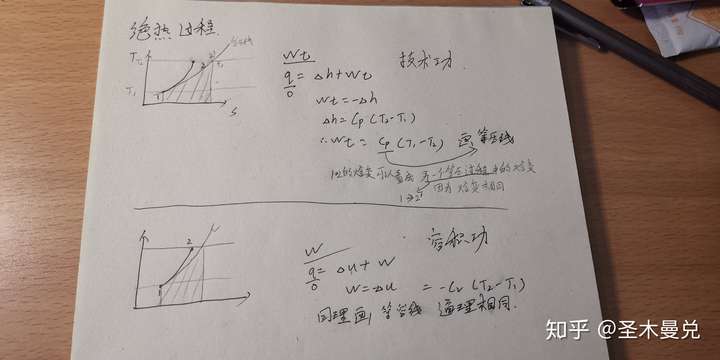 绝热过程.
T
T₂
T₁
1
2
2'
S
Wt
技术功.
q = Δh + Wt
0
Wt = -Δh
Δh = Cp (T₂-T₁)
∴ Wt = Cp (T₁-T₂) 画 等压线
1-2的焓变可以看成 另一个等压过程 的焓变
1→2' 因为 焓变相同
2
1
W
容积功
q = Δu + W
0
W = Δu = -Cv (T₂-T₁)
同理画 等容线 道理相同.
知乎 @圣木曼兑